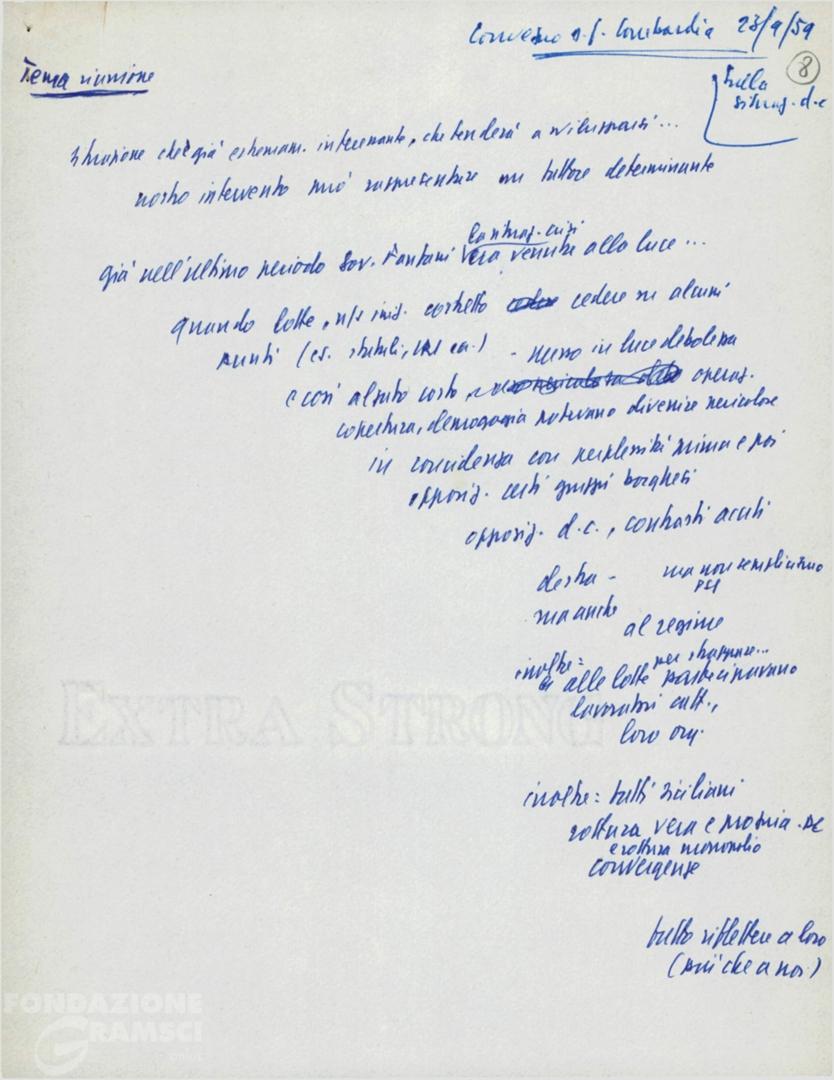 Convegno s.f. Lombardia 23/9/59
8
Tema riunione
sulla
situaz. d.c
situazione che è già estremam. interessante, che tenderà a svilupparsi...
nostro intervento può rappresentare un fattore determinante
già nell'ultimo periodo Gov. Fanfani era venuta alla luce...
la situaz. crisi
quando lotte, costretto cedere su alcuni
punti (es. statali, ecc.) - messo in luce debolezza
e così alsuto costo, operaz.
copertura, demagogia potevano divenire pericolose
in coincidenza con perplessità prima e poi
opposiz. certi gruppi borghesi
opposiz. d.c., contrasti acuti
destra - ma non semplicismo
PSI
ma anche
al regime
inoltre: per strappare...
alle lotte partecipavano
lavoratori catt.,
loro org.
inoltre: fatti siciliani
rottura vera e propria DC
e rottura monopolio
convergenze
fatto riflettere a loro
(più che a noi)
EXTRA STRONG
FONDAZIONE
GRAMSCI
onlus